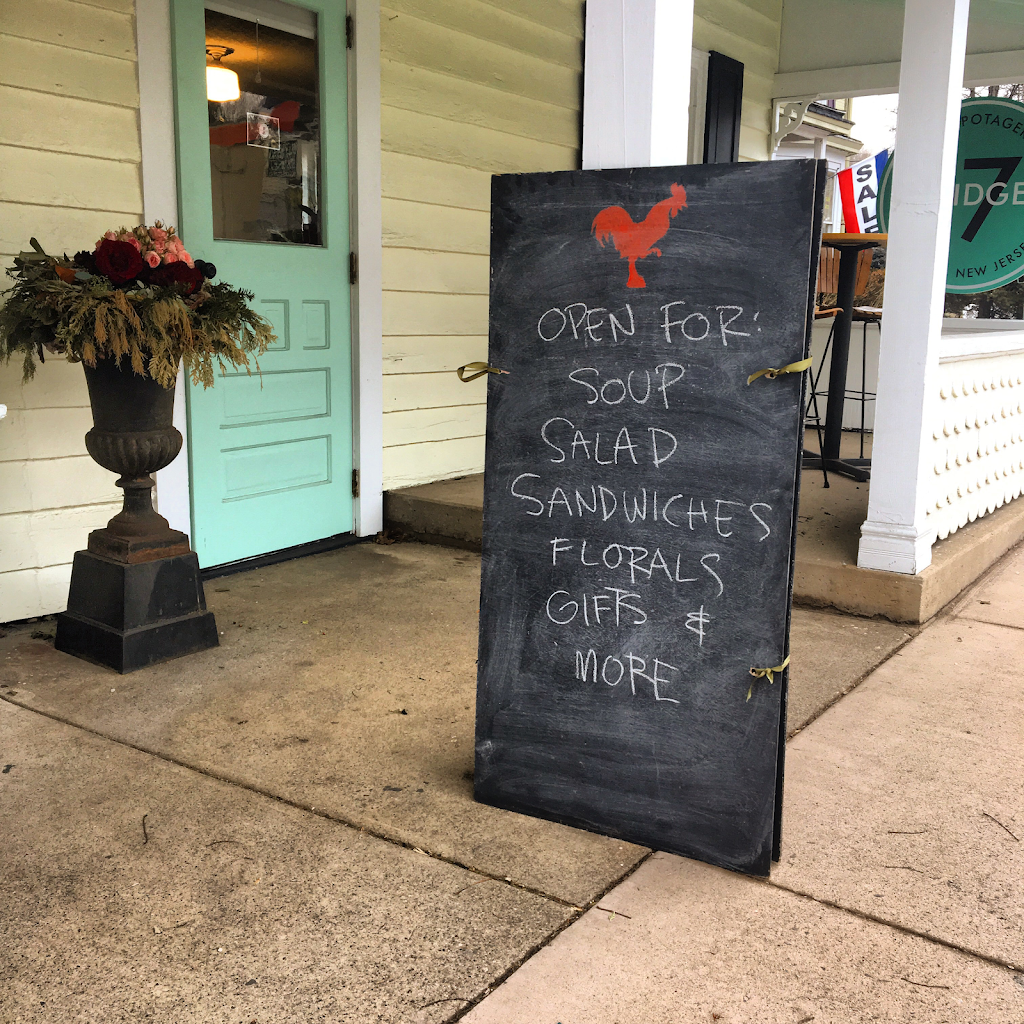 OPEN FOR:
SOUP
SALAD
SANDWICHES
FLORALS
GIFTS &
MORE
SALE
POTAGER
7
IDGE
NEW JERSE